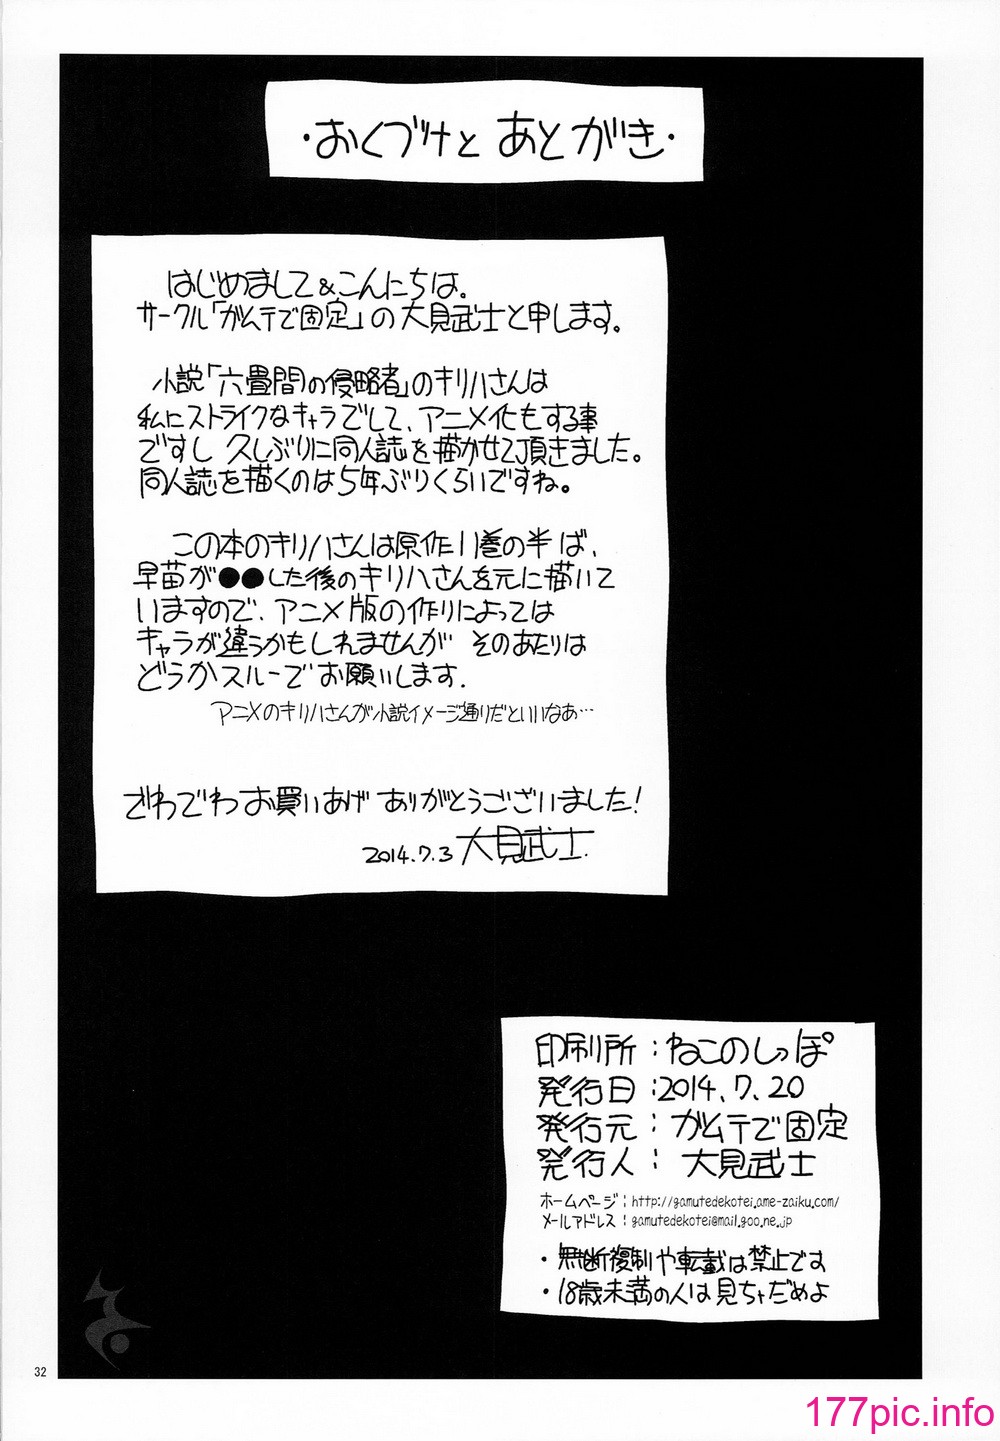 ・おくづけと あとがき・
はじめまして&こんにちは。
サークル「ガムテで固定」の大見武士と申します。
小説「六畳間の侵略者」のキリハさんは
私にストライクなキャラでして、アニメ化もする事
ですし 久しぶりに同人誌を描かせて頂きました。
同人誌を描くのは5年ぶりくらいですね。
この本のキリハさんは原作11巻の半ば、
早苗が●●した後のキリハさんを元に描いて
いますので、アニメ版の作りによっては
キャラが違うかもしれませんが そのあたりは
どうかスルーでお願いします.
アニメのキリハさんが小説イメージ通りだといいなあ…
でわでわ お買いあげ ありがとうございました!
2014.7.3 大見武士.
印刷所:ねこのしっぽ
発行日:2014.7.20
発行元:ガムテで固定
発行人:大見武士
ホームページ:http://gamutedekotei.ame-zaiku.com/
メールアドレス:gamutedekotei@mail.goo.ne.jp
・無断複制や転載は禁止です
・18歳未満の人は見ちゃだめよ
32
177pic.info